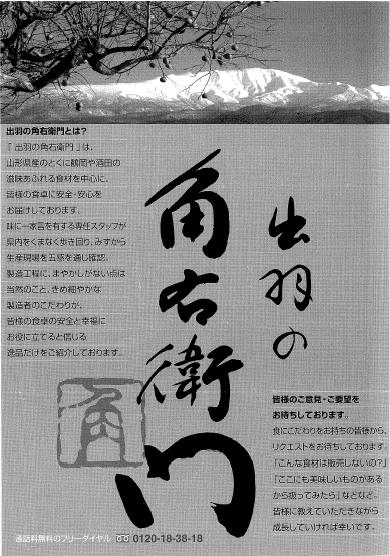 出羽の角右衛門とは?
「出羽の角右衛門」は、
山形県産のとくに鶴岡や酒田の
滋味あふれる食材を中心に、
皆様の食卓に安全・安心を
お届けしております。
味に一家言を有する専任スタッフが
県内をくまなく歩き回り、みずから
生産現場を五感を通じ確認。
製造工程に、まやかしがない点は
当然のこと、きめ細やかな
製造者のこだわりが、
皆様の食卓の安全と幸福に
お役に立てると信じる
逸品だけをご紹介しております。
出羽の
角右衛門
角
皆様のご意見・ご要望を
お待ちしております。
食にこだわりをお持ちの皆様から、
リクエストをお待ちしております。
「こんな食材は販売しないの?」
「ここにも美味しいものがある
から扱ってみたら」などなど。
皆様に教えていただきながら
成長していければ幸いです。
通話料無料のフリーダイヤル 0120-18-38-18